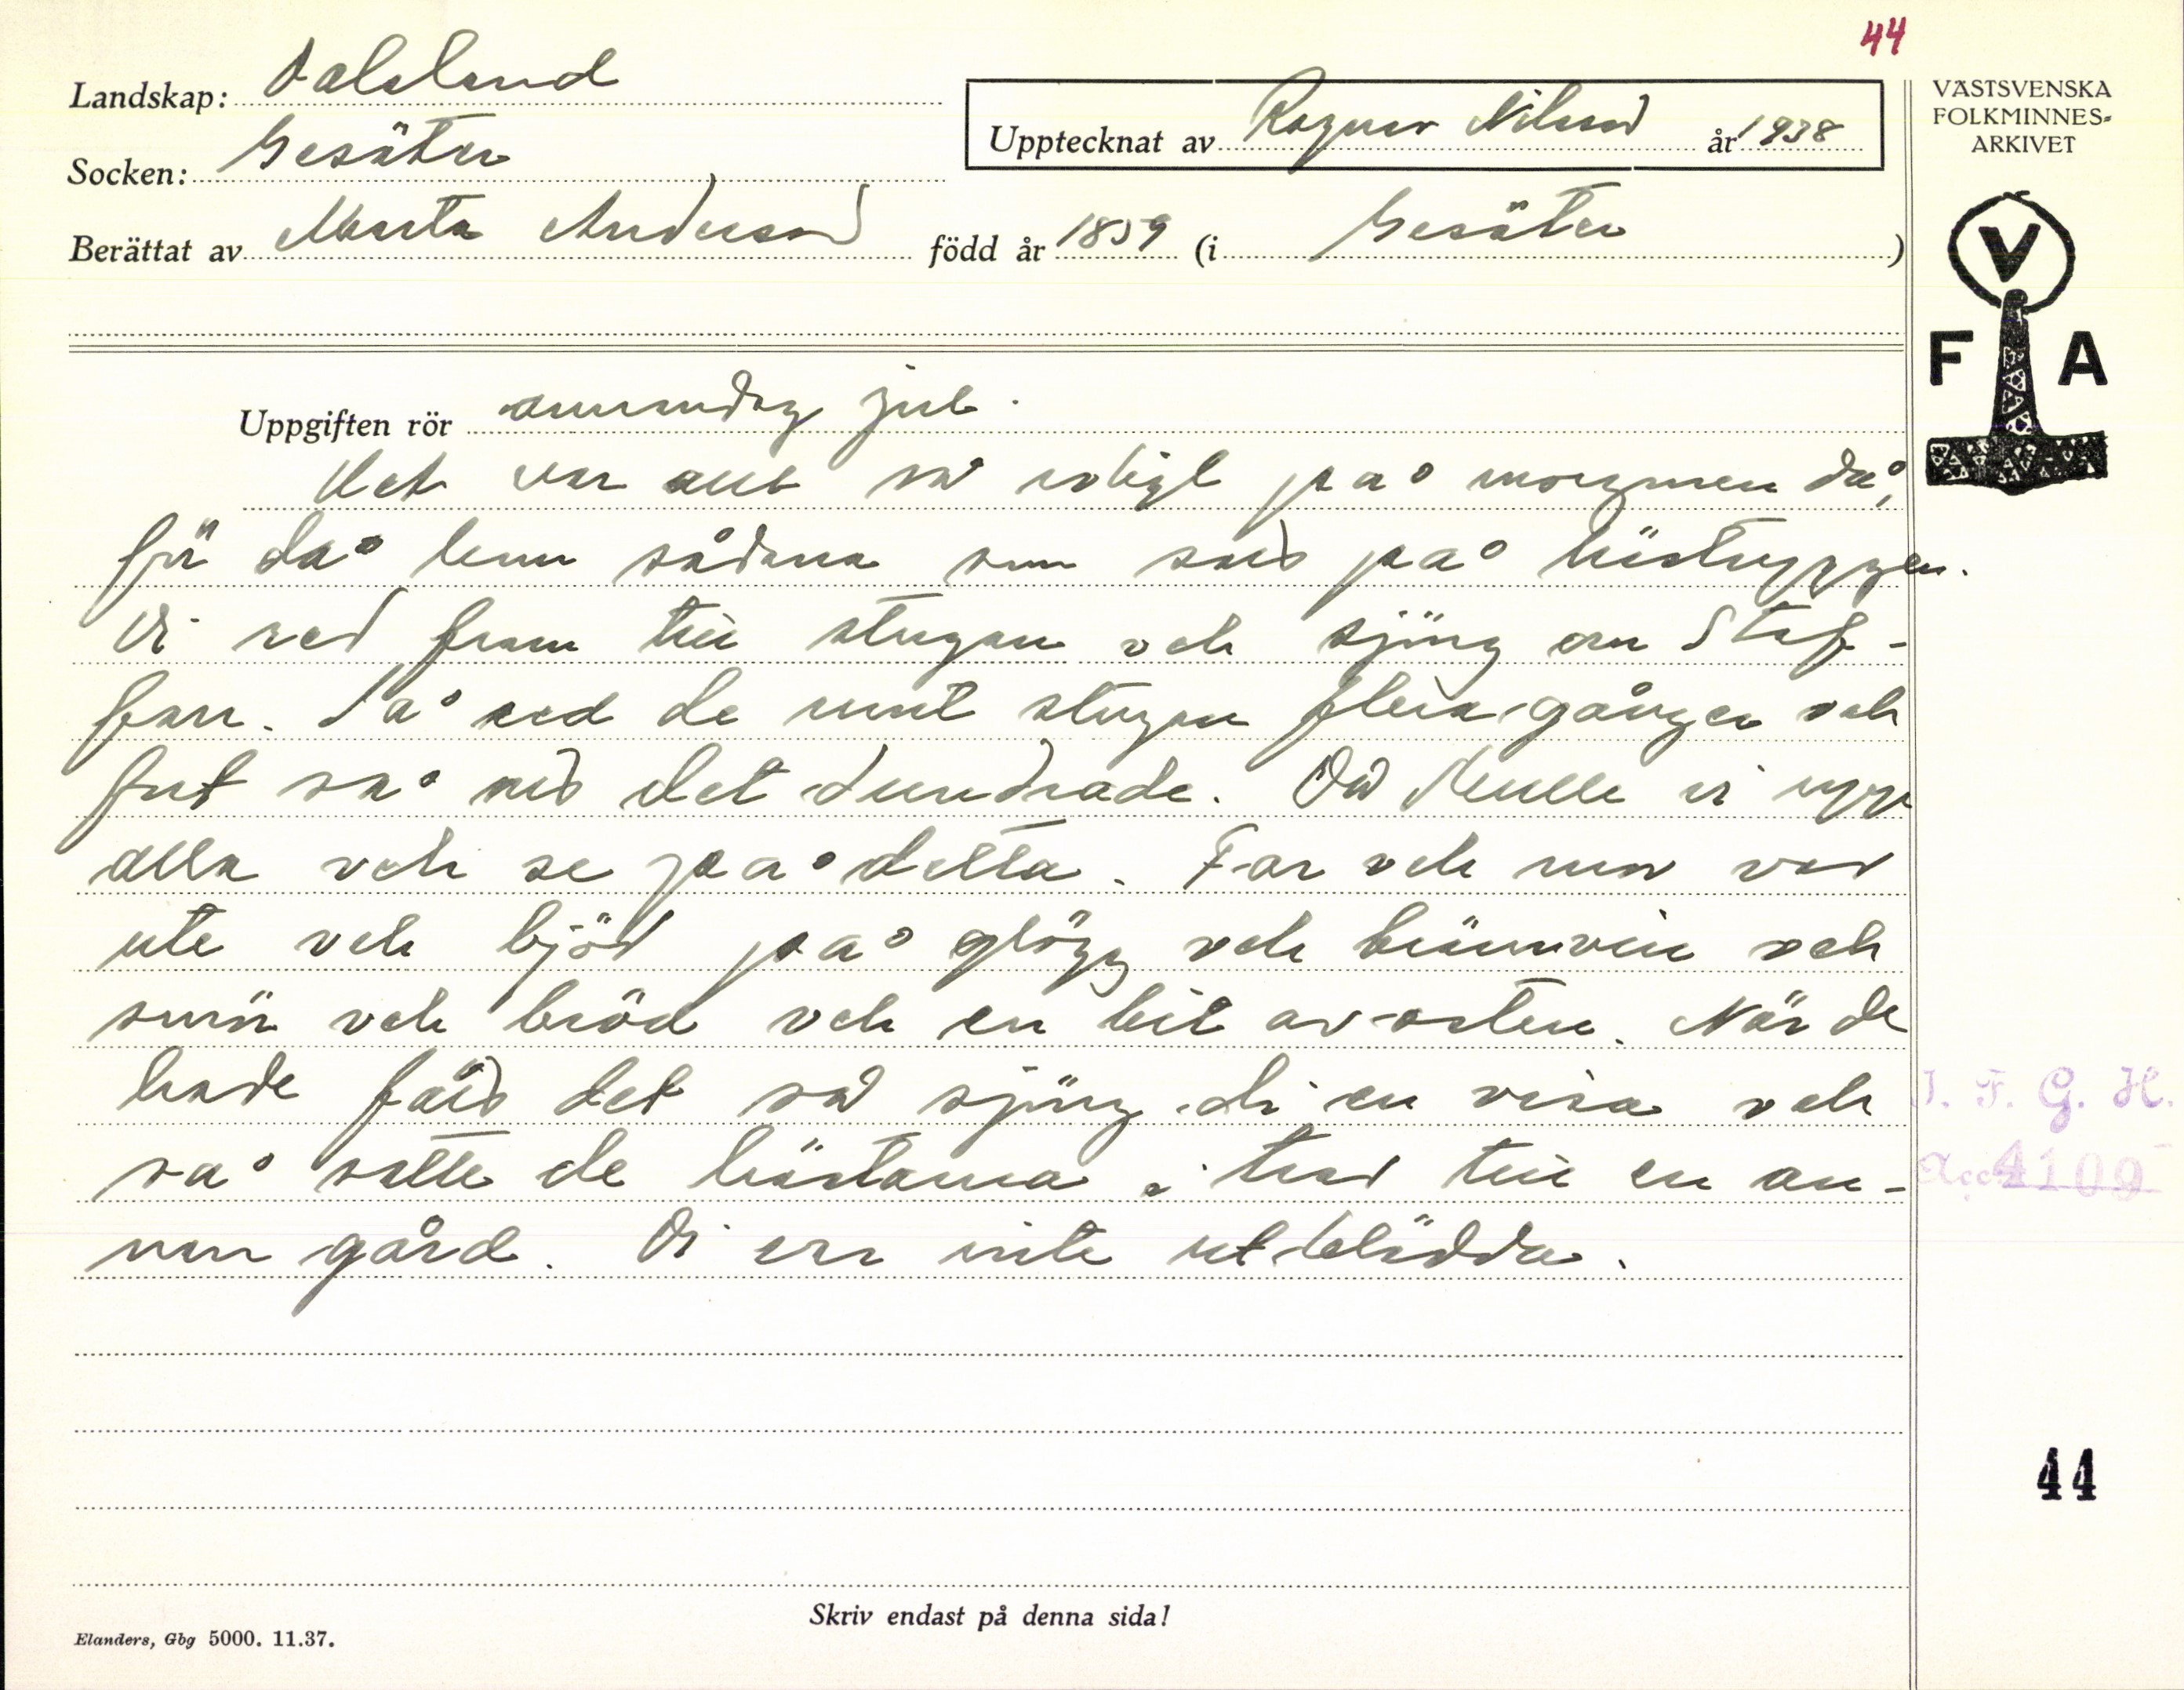 44
Landskap: Dalsland
Socken: Gesäter
Upptecknat av Ragnar Nilsson år 1938
VÄSTSVENSKA
FOLKMINNES-
ARKIVET
Berättat av Marta Andersson född år 1859 (i Gesäter)
V
F A
Uppgiften rör annandag jul.
Det var allt så roligt på morgonen då,
för då kom sådana som satt på hästryggen.
Di red fram till stugan och sjöng om Staf-
fan. Så red de runt stugan flera gånger och
fort så att det dundrade. Då skulle vi upp
alla och se på detta. Far och mor var
ute och bjöd på glögg och brännvin och
smör och bröd och en bit av osten. När de
hade fått det så sjöng di en visa och
så satte de hästarna i trav till en an-
nan gård. Di var inte utklädda.
I. F. G. H.
Acc. 4109
44
Skriv endast på denna sida!
Elanders, Gbg 5000. 11.37.